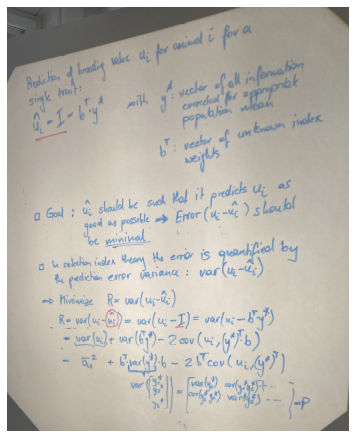 Prediction of breeding value u_i for animal i for a
single trait:
û_i = I = b^T · y*   with y*: vector of all information
corrected for appropriate
population mean
b^T: vector of unknown index
weights
□ Goal: û_i should be such that it predicts u_i as
good as possible ⇒ Error (u_i - û_i) should
be minimal
□ In selection index theory the error is quantified by
the prediction error variance: var(u_i - û_i)
⇒ Minimize R = var(u_i - û_i)
R = var(u_i - û_i) = var(u_i - I) = var(u_i - b^T y*)
= var(u_i) + var(b^T y*) - 2 cov(u_i, (y*)^T · b)
= σ_u² + b^T · var(y*) · b - 2 b^T cov(u_i, (y*)^T)